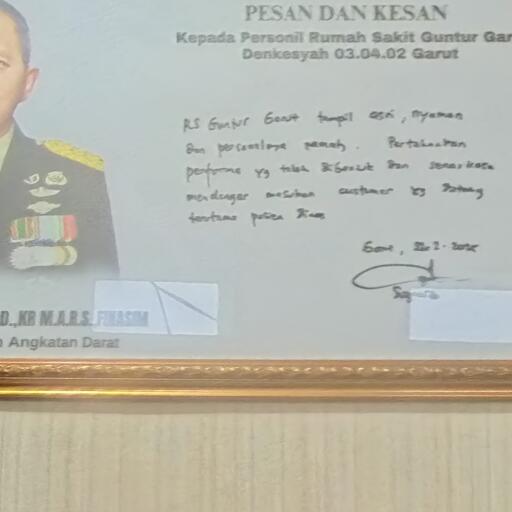 PESAN DAN KESAN
Kepada Personil Rumah Sakit Guntur Gar
Denkesyah 03.04.02 Garut
RS Guntur Garut tampil asri, nyaman
dan personelnya ramah. Pertahankan
performa yg telah dibentuk dan
mendengar masukan customer yg datang
terutama pasien
D.,KR M.A.R.S.,FINASIM
Angkatan Darat